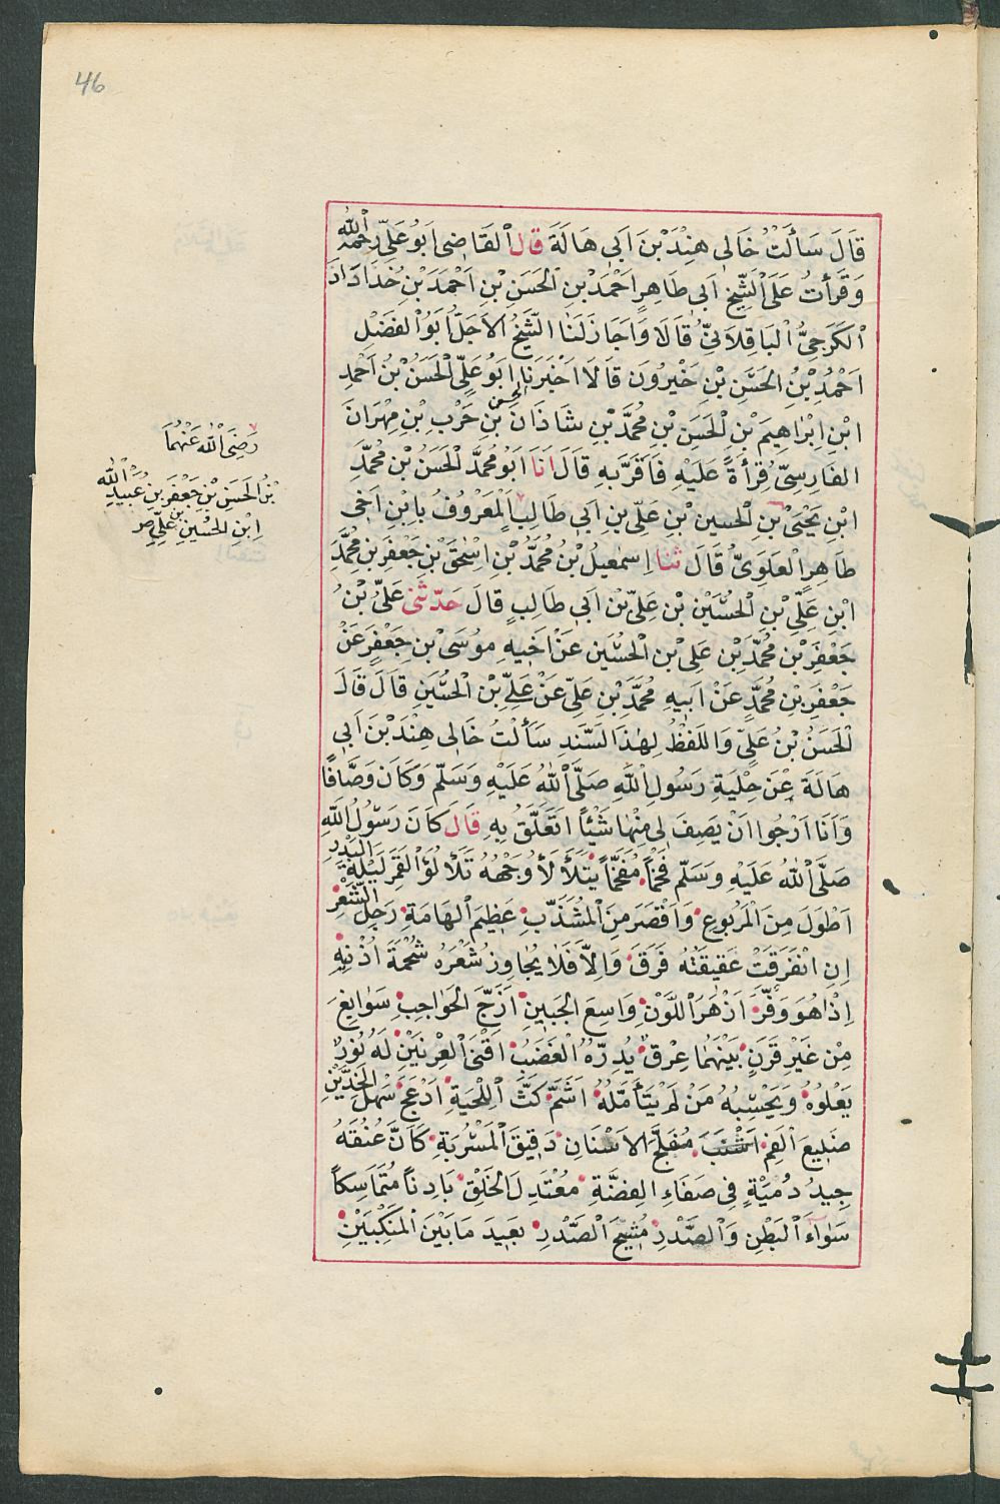 46
قَالَ سَأَلْتُ خَالِي هِنْدَ بْنَ اَبِي هَالَةَ قال القَاضِي اَبُو عَلِيّ رحمه الله
وَقَرَأتُ عَلَى الشَّيْخِ اَبِي طَاهِرٍ اَحْمَدَ بْنِ الحَسَنِ بْنِ اَحْمَدَ بْنِ خُدَادَادَ
الْكَرَجِيُّ الْبَاقِلَانِيّ قَالَا وَاَجَازَ لَنَا الشَّيْخُ الاَجَلُّ اَبُو الفَضْلِ
اَحْمَدُ بْنُ الحَسَنِ بْنِ خَيْرُونَ قَالَا اَخْبَرَنَا اَبُو عَلِيّ الْحَسَنُ بْنُ اَحْمَدَ
ابْنِ اِبْرَاهِيمَ بْنِ الْحَسَنِ بْنِ مُحَمَّدِ بْنِ شَاذَانَ بْنِ حَرْبِ بْنِ مِهْرَانَ
الفَارِسِيّ قِرَأةً عَلَيْهِ فَاَقَرَّ بِهِ قَالَ اَنَا اَبُو مُحَمَّد الْحَسَنُ بْنُ مُحَمَّدِ
ابْنِ يَحْيَى بْنِ الحسين بْنِ عَلِيّ بْنِ اَبِي طَالِبٍ الْمَعْرُوفُ بِابْنِ اَخِي
طَاهِرٍ الْعَلَوِيُّ قَالَ ثنا اِسمٰعِيلُ بْنُ مُحَمَّدِ بْنِ اِسْحٰقَ بْنِ جَعْفَرِ بْنِ مُحَمَّدِ
ابْنِ عَلِيِّ بْنِ الْحُسَيْنِ بْنِ عَلِيّ بْنِ اَبِي طَالِبٍ قَالَ حَدَّثَنِي عَلِيُّ بْنُ
جَعْفَرِ بْنِ مُحَمَّدِ بْنِ عَلِيّ بْنِ الْحُسَيْنِ عَنْ اَخِيهِ مُوسَى بْنِ جَعْفَرٍ عَنْ
جَعْفَرِ بْنِ مُحَمَّدٍ عَنْ اَبِيهِ مُحَمَّدِ بْنِ عَلِيّ عَنْ عَلِيّ بْنِ الْحُسَيْنِ قَالَ قَالَ
الْحَسَنُ بْنُ عَلِيٍّ وَاللَّفْظُ لِهٰذَا السَّنَدِ سَأَلْتُ خَالِي هِنْدَ بْنَ اَبِي
هَالَةَ عَنْ حِلْيَةِ رَسُولِ اللهِ صَلَّى اللهُ عَلَيْهِ وَسَلَّمَ وَكَانَ وَصَّافًا
وَاَنَا اَرْجُوا اَنْ يَصِفَ لِي مِنْهَا شَيْئًا اَتَعَلَّقُ بِهِ قَالَ كَانَ رَسُولُ اللهِ
صَلَّى اللهُ عَلَيْهِ وَسَلَّمَ فَخْمًا مُفَخَّمًا يَتَلَأْلَأُ وَجْهُهُ تَلَأْلُؤَ القَمَرِ لَيْلَةَ الْبَدْرِ
اَطْوَلَ مِنَ الْمَرْبُوعِ وَاَقْصَرَ مِنَ الْمُشَذَّبِ عَظِيمَ الْهَامَةِ رَجِلَ الشَّعْرِ
اِنِ انْفَرَقَتْ عَقِيقَتُهُ فَرَقَ وَاِلَّا فَلَا يُجَاوِزُ شَعْرُهُ شَحْمَةَ اُذُنِهِ
اِذَا هُوَ وَفَّرَ اَزْهَرَ اللَّوْنِ وَاسِعَ الْجَبِينِ اَزَجَّ الْحَوَاجِبِ سَوَابِغَ
مِنْ غَيْرِ قَرَنٍ بَيْنَهُمَا عِرْقٌ يُدِرُّهُ الْغَضَبُ اَقْنَى الْعِرْنَيْنِ لَهُ نُورٌ
يَعْلُوهُ وَيَحْسِبُهُ مَنْ لَمْ يَتَأَمَّلْهُ اَشَمَّ كَثَّ اللِّحْيَةِ اَدْعَجَ سَهْلَ الْخَدَّيْنِ
ضَلِيعَ الْفَمِ اَشْنَبَ مُفَلَّجَ الاَسْنَانِ دَقِيقَ الْمَسْرُبَةِ كَاَنَّ عُنُقَهُ
جِيدُ دُمْيَةٍ فِي صَفَاءِ الفِضَّةِ مُعْتَدِلَ الْخَلْقِ بَادِنًا مُتَمَاسِكًا
سَوَاءَ الْبَطْنِ وَالصَّدْرِ مُشِيحَ الصَّدْرِ بَعِيدَ مَا بَيْنَ الْمَنْكِبَيْنِ
رَضِيَ اللهُ عَنْهُمَا
بْنُ الْحَسَنِ بْنِ جَعْفَرِ بْنِ عُبَيْدِ اللهِ
ابْنِ الْحُسَيْنِ بْنِ عَلِيّ صر